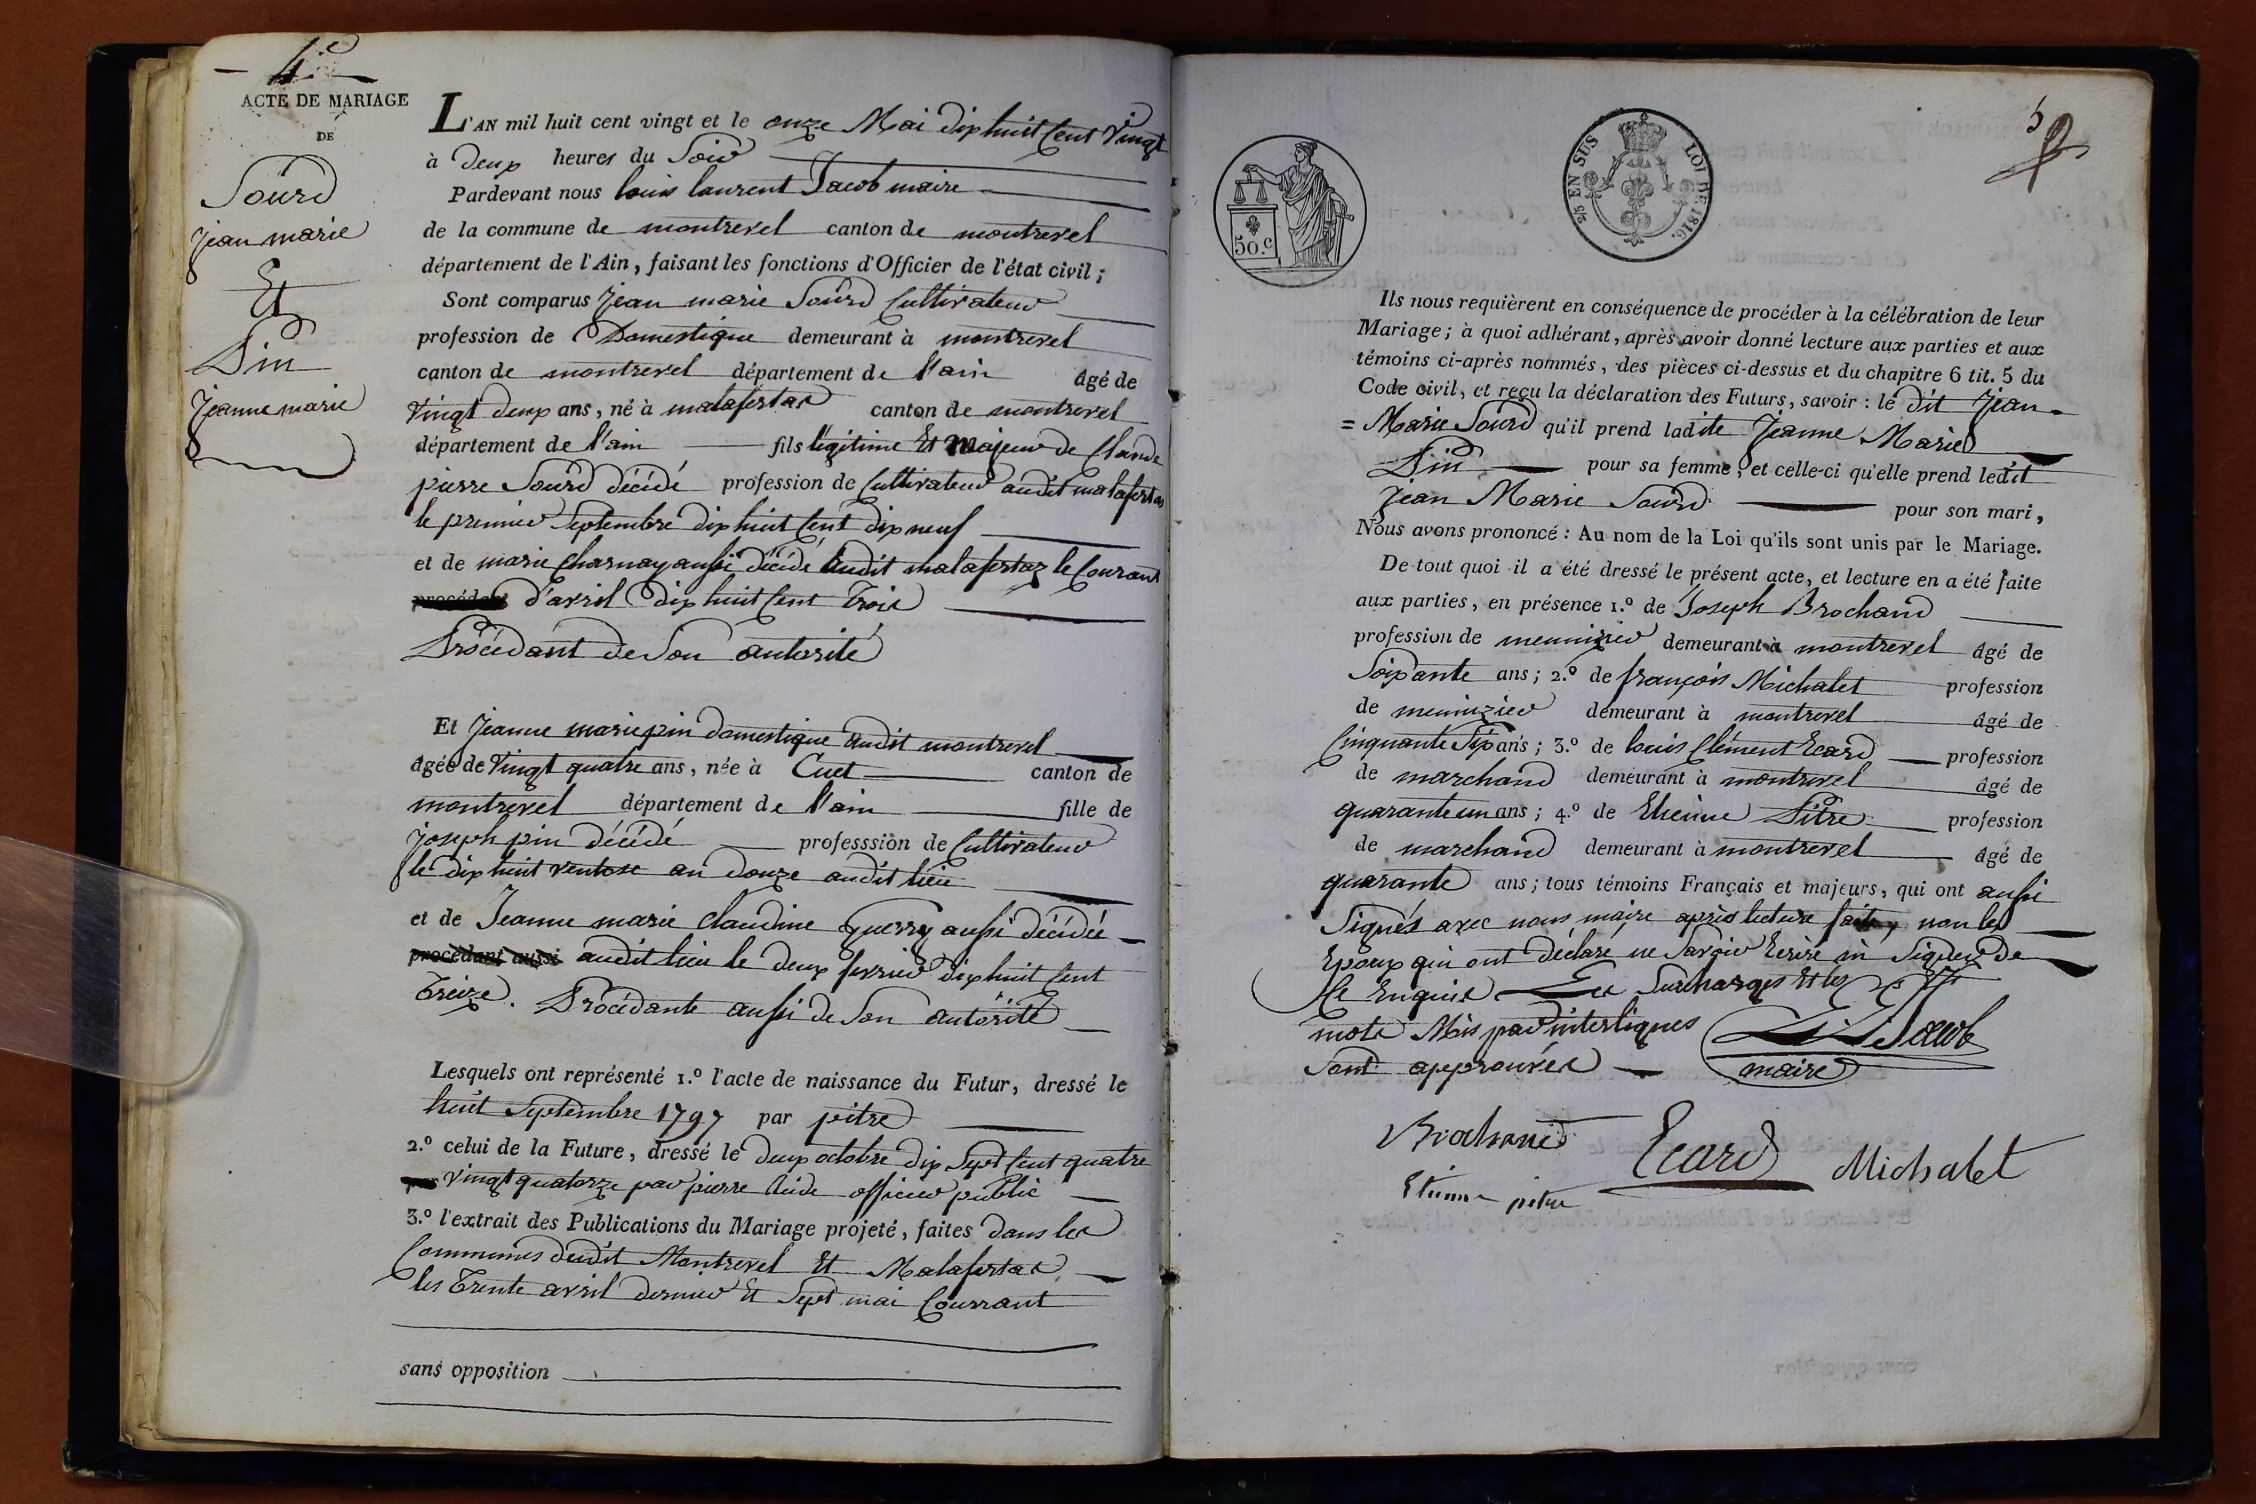 4.e
ACTE DE MARIAGE
DE
Sourd
Jean marie
Et
Pin
Jeanne marie
L'AN mil huit cent vingt et le onze Mai dix huit Cent Vingt
à Deux heures du Soir
Pardevant nous louis laurent Jacob maire
de la commune de montrevel canton de montrevel
département de l'Ain, faisant les fonctions d'Officier de l'état civil;
Sont comparus Jean marie Sourd Cultivateur
profession de Domestique demeurant à montrevel
canton de montrevel département de l'ain âgé de
Vingt deux ans, né à malafertas canton de montrevel
département de l'ain fils légitime Et Majeur de Claude
pierre Sourd décédé profession de Cultivateur audit malafertas
le premier Septembre dix huit Cent dix neuf
et de marie Charnay aussi décédé audit malafertaz le Courant
procédant d'avril Dix huit Cent Trois
Procédant de Son autorité
Et Jeanne marie pin domestique audit montrevel
âgée de Vingt quatre ans, née à Cuet canton de
montrevel département de l'ain fille de
joseph pin décédé professsion de Cultivateur
le dix huit ventose an douze audit lieu
et de Jeanne marie claudine guerry aussi décédée
procédant aussi audit lieu le deux fevrier dix huit Cent
Treize. Procédante aussi de Son autorité
Lesquels ont représenté 1.º l'acte de naissance du Futur, dressé le
huit Septembre 1797 par pitre
2.º celui de la Future, dressé le deux octobre dix Sept Cent quatre
par Vingt quatorze par pierre officier public
3.º l'extrait des Publications du Mariage projeté, faites dans les
Communes dudit Montrevel Et Malafertas
les Trente avril dernier Et Sept mai Courrant
sans opposition
50.c
25 EN SUS LOI DE 1816.
5
Ils nous requièrent en conséquence de procéder à la célébration de leur
Mariage; à quoi adhérant, après avoir donné lecture aux parties et aux
témoins ci-après nommés, des pièces ci-dessus et du chapitre 6 tit. 5 du
Code civil, et reçu la déclaration des Futurs, savoir: le dit Jean-
= Marie Sourd qu'il prend ladite Jeanne Marie
Pin pour sa femme, et celle-ci qu'elle prend ledit
Jean Marie Sourd pour son mari,
Nous avons prononcé: Au nom de la Loi qu'ils sont unis par le Mariage.
De tout quoi il a été dressé le présent acte, et lecture en a été faite
aux parties, en présence 1.º de Joseph Brochand
profession de menuizier demeurant à montrevel âgé de
Soixante ans; 2.º de françois Michalet profession
de menuizier demeurant à montrevel âgé de
Cinquante Six ans; 3.º de louis Clément Ecard profession
de marchand demeurant à montrevel âgé de
quarante un ans; 4.º de Etienne Pitre profession
de marchand demeurant à montrevel âgé de
quarante ans; tous témoins Français et majeurs, qui ont aussi
Signés avec nous maire après lecture faite, non les
Epoux qui ont déclaré ne Savoir Ecrire ni Signer de
Ce Enquis Les Surcharges Et les
mots Mis par interlignes
Sont approuvés
L L Jacob
maire
Brochand
Ecard
Michalet
Etienne pitre